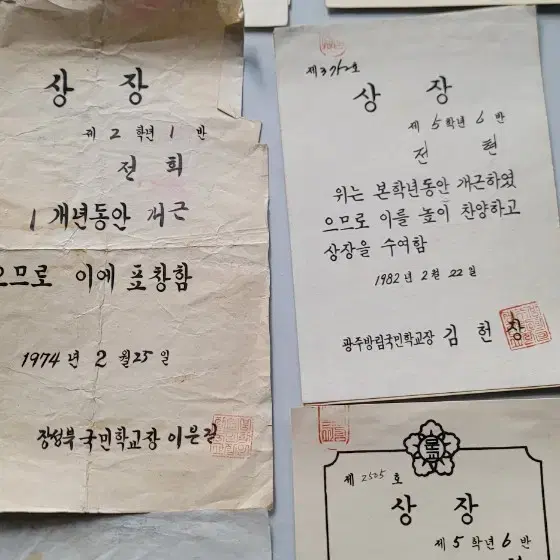 상 장
제 2 학년 1 반
전 희
1 개년동안 개근
으므로 이에 표창함
1974 년 2 월 25 일
장성북국민학교장 이은길
제372호
상 장
제 5 학년 6 반
전 현
위는 본학년동안 개근하였
으므로 이를 높이 찬양하고
상장을 수여함
1982 년 2 월 22 일
광주방림국민학교장 김 헌
제 2505 호
상 장
제 5 학년 6 반